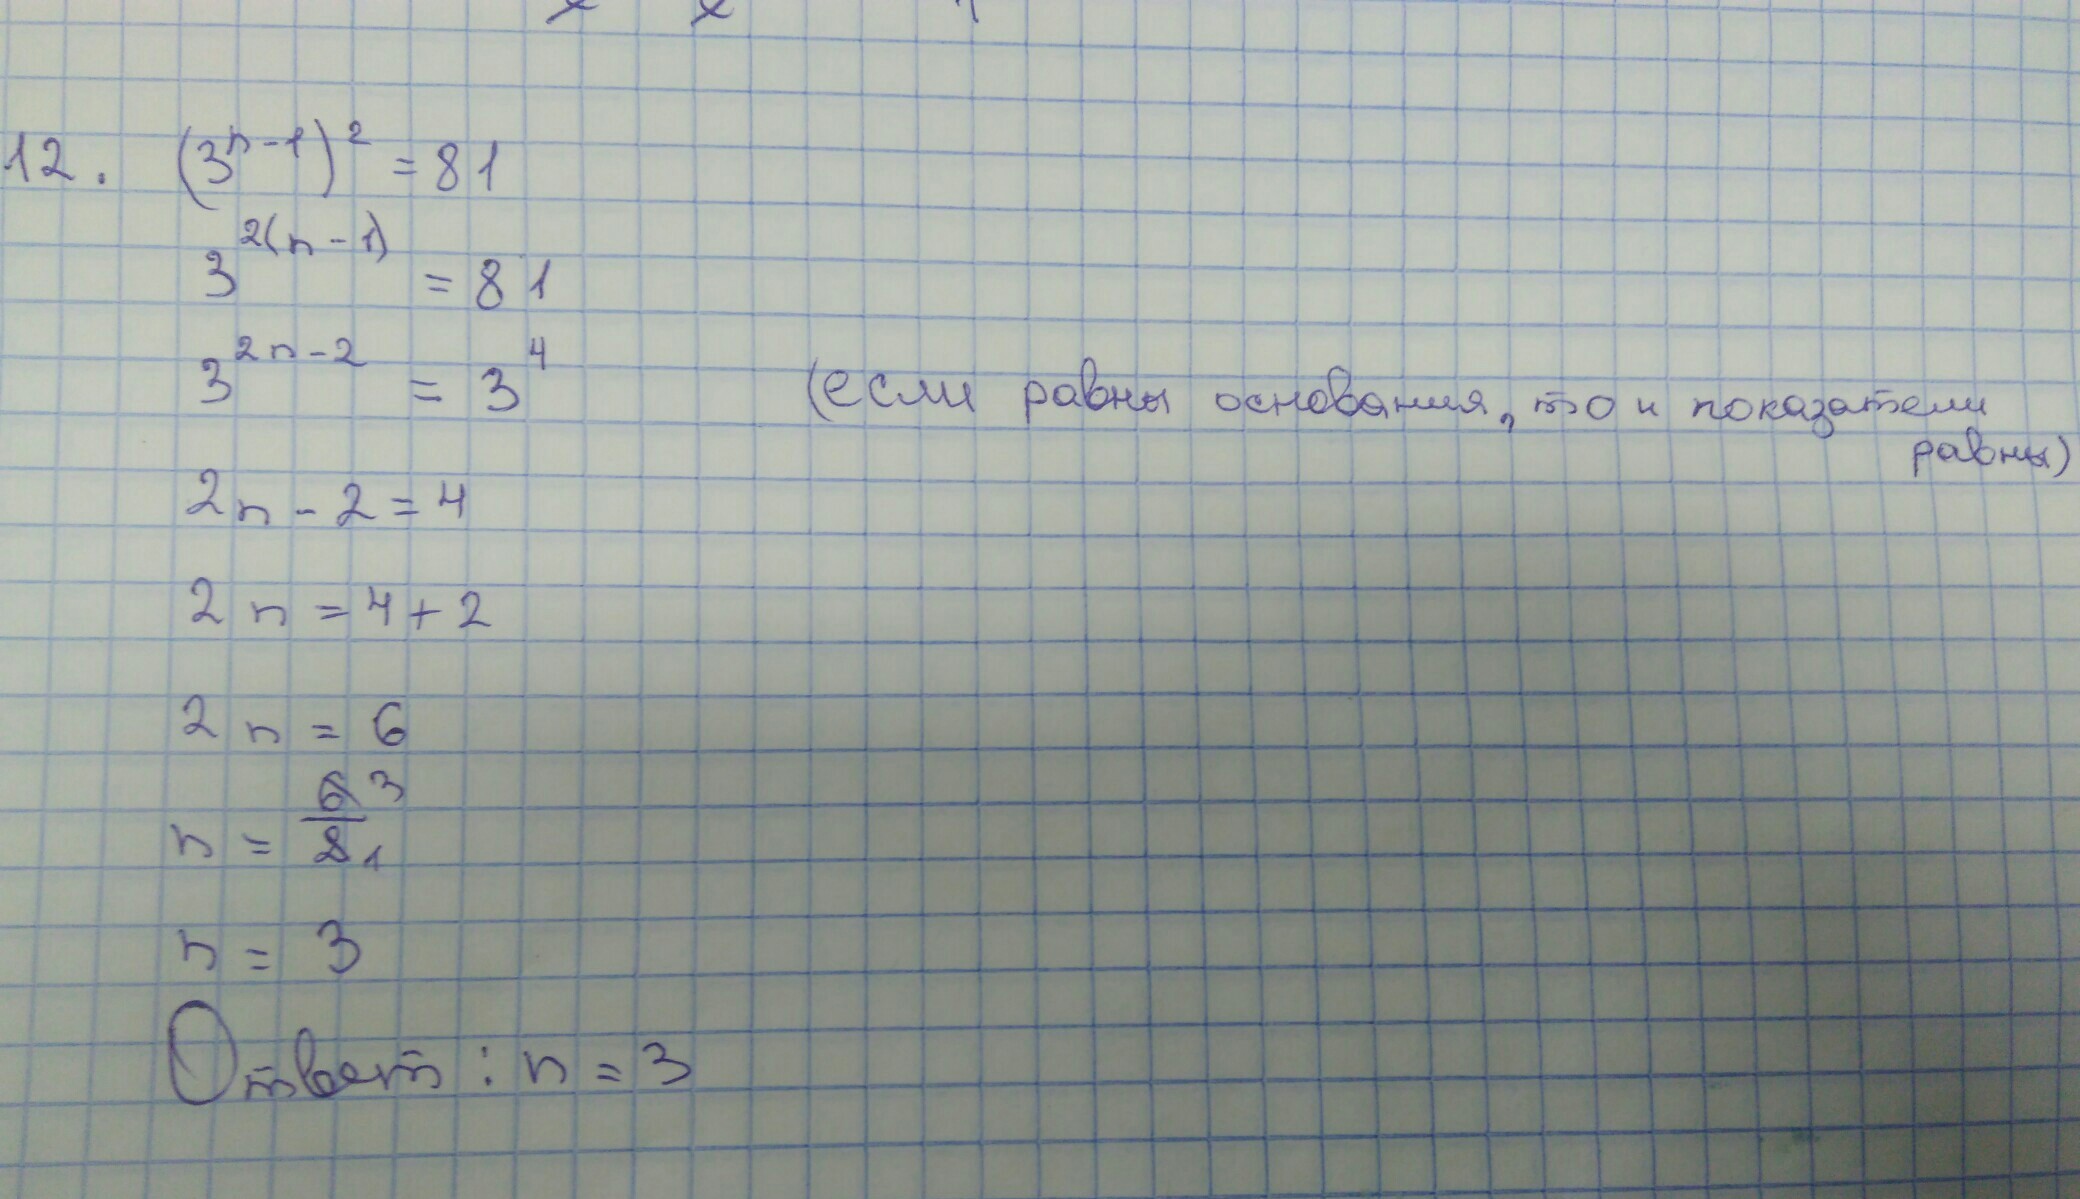 12. (3^{n-1})^2 = 81
3^{2(n-1)} = 81
3^{2n-2} = 3^4 (если равны основания, то и показатели
равны)
2n - 2 = 4
2n = 4 + 2
2n = 6
n = 6/2 3 1
n = 3
Ответ : n = 3